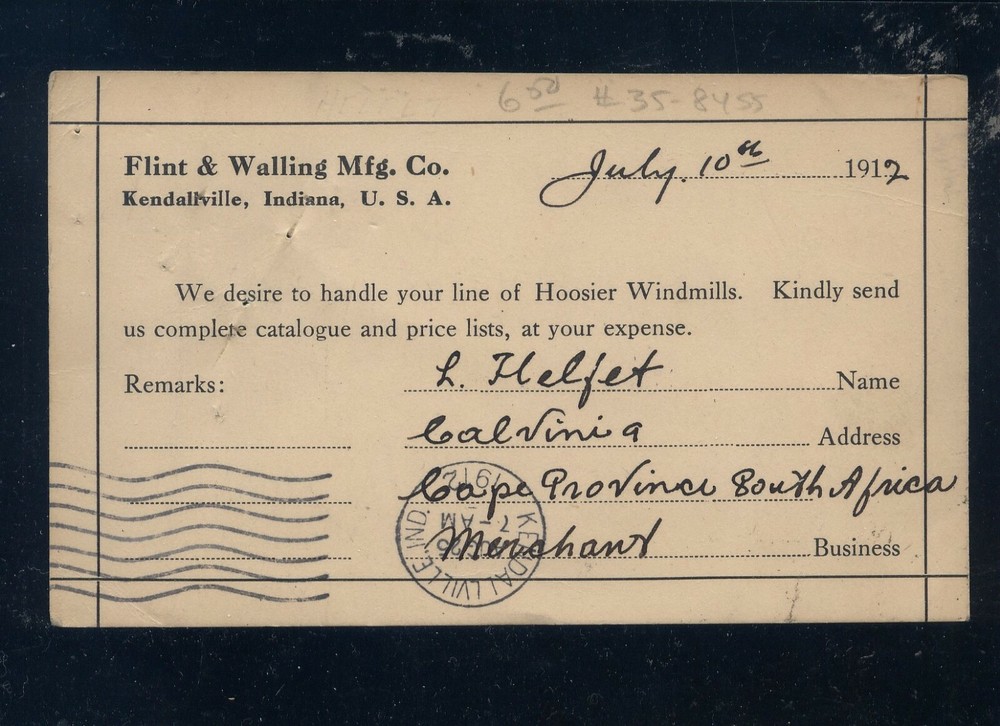 6 50 # 35-8455
Flint & Walling Mfg. Co.
Kendallville, Indiana, U. S. A.
July. 10th 1912
We desire to handle your line of Hoosier Windmills. Kindly send
us complete catalogue and price lists, at your expense.
Remarks:
L. Helfet Name
Calvinia Address
Cape Province South Africa
Merchant Business
KENDALLVILLE IND.
7-AM
1912